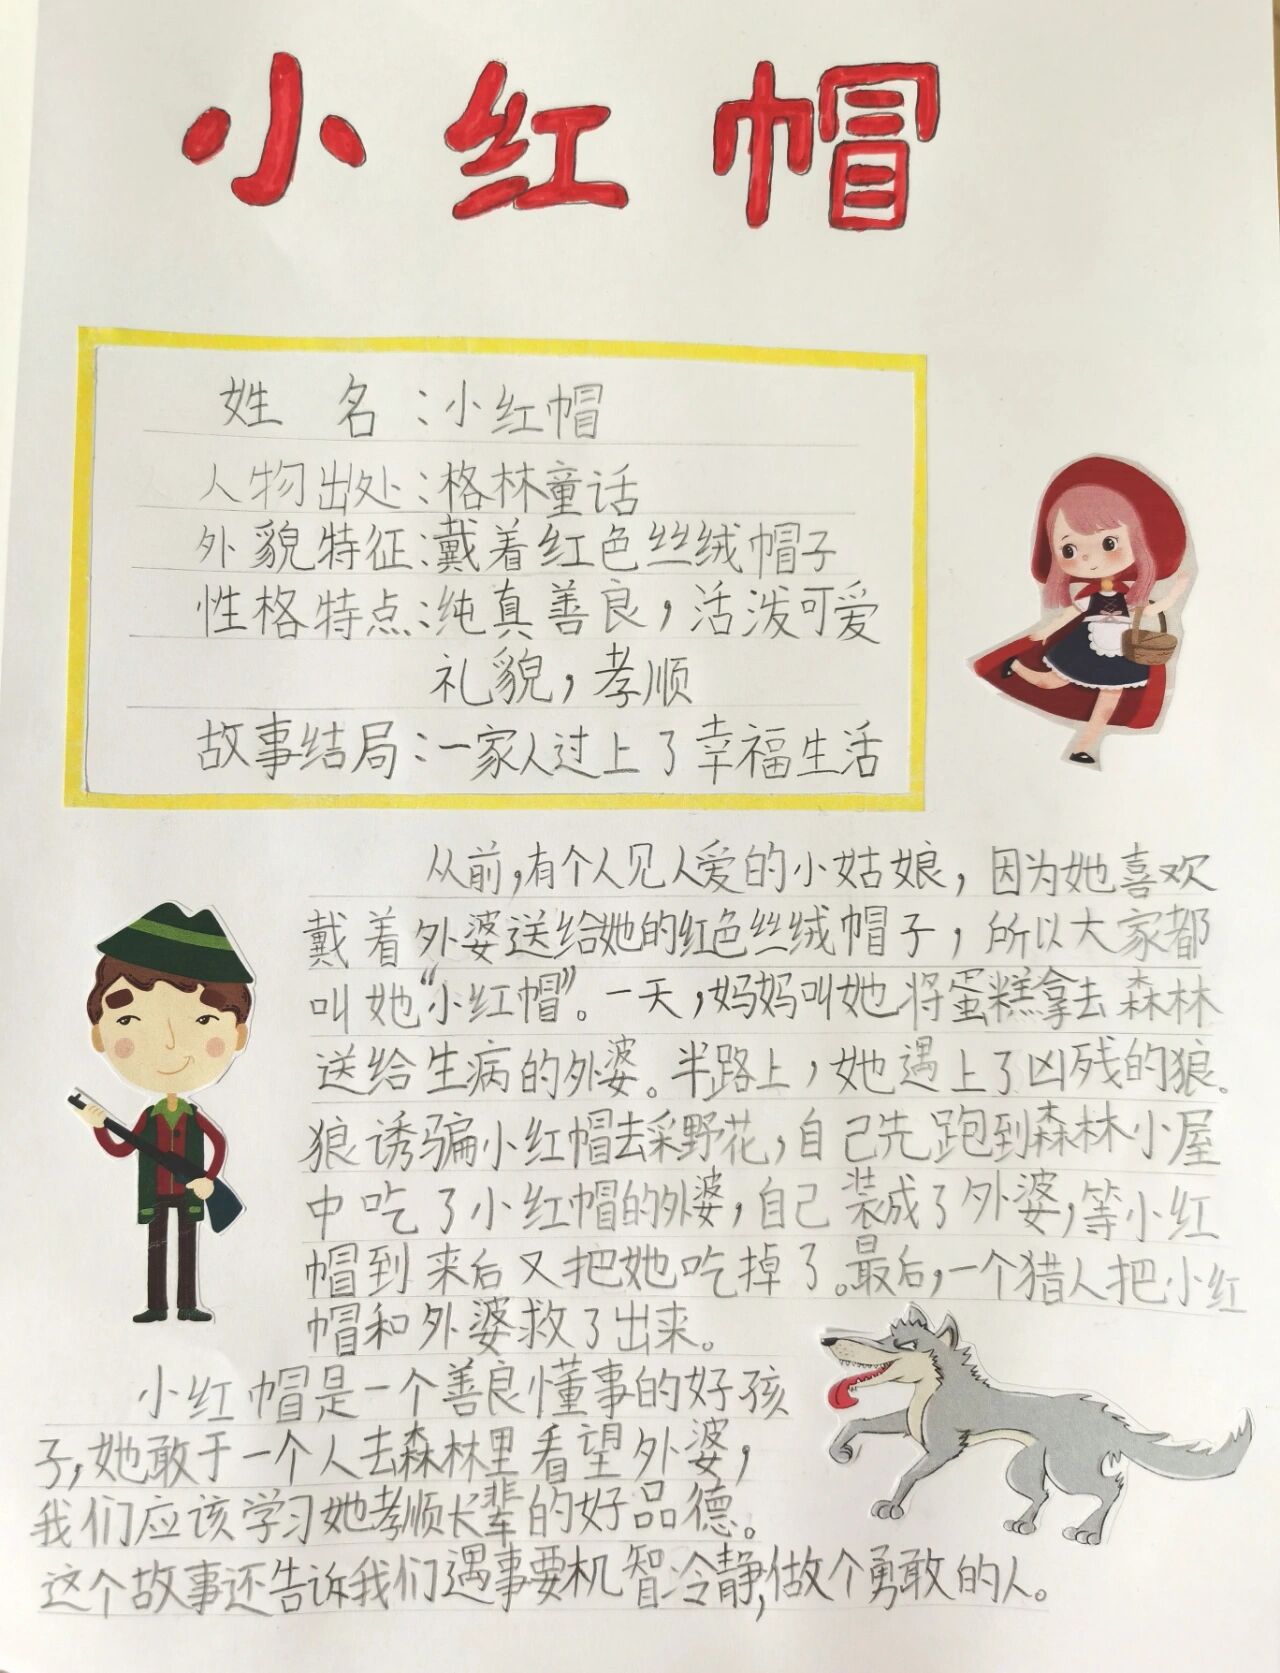 小红帽
姓名：小红帽
人物出处：格林童话
外貌特征：戴着红色丝绒帽子
性格特点：纯真善良，活泼可爱
礼貌，孝顺
故事结局：一家人过上了幸福生活
从前，有个人见人爱的小姑娘，因为她喜欢
戴着外婆送给她的红色丝绒帽子，所以大家都
叫她“小红帽”。一天，妈妈叫她将蛋糕拿去森林
送给生病的外婆。半路上，她遇上了凶残的狼。
狼诱骗小红帽去采野花，自己先跑到森林小屋
中吃了小红帽的外婆，自己装成了外婆，等小红
帽到来后又把她吃掉了。最后，一个猎人把小红
帽和外婆救了出来。
小红帽是一个善良懂事的好孩
子，她敢于一个人去森林里看望外婆，
我们应该学习她孝顺长辈的好品德。
这个故事还告诉我们遇事要机智冷静，做个勇敢的人。